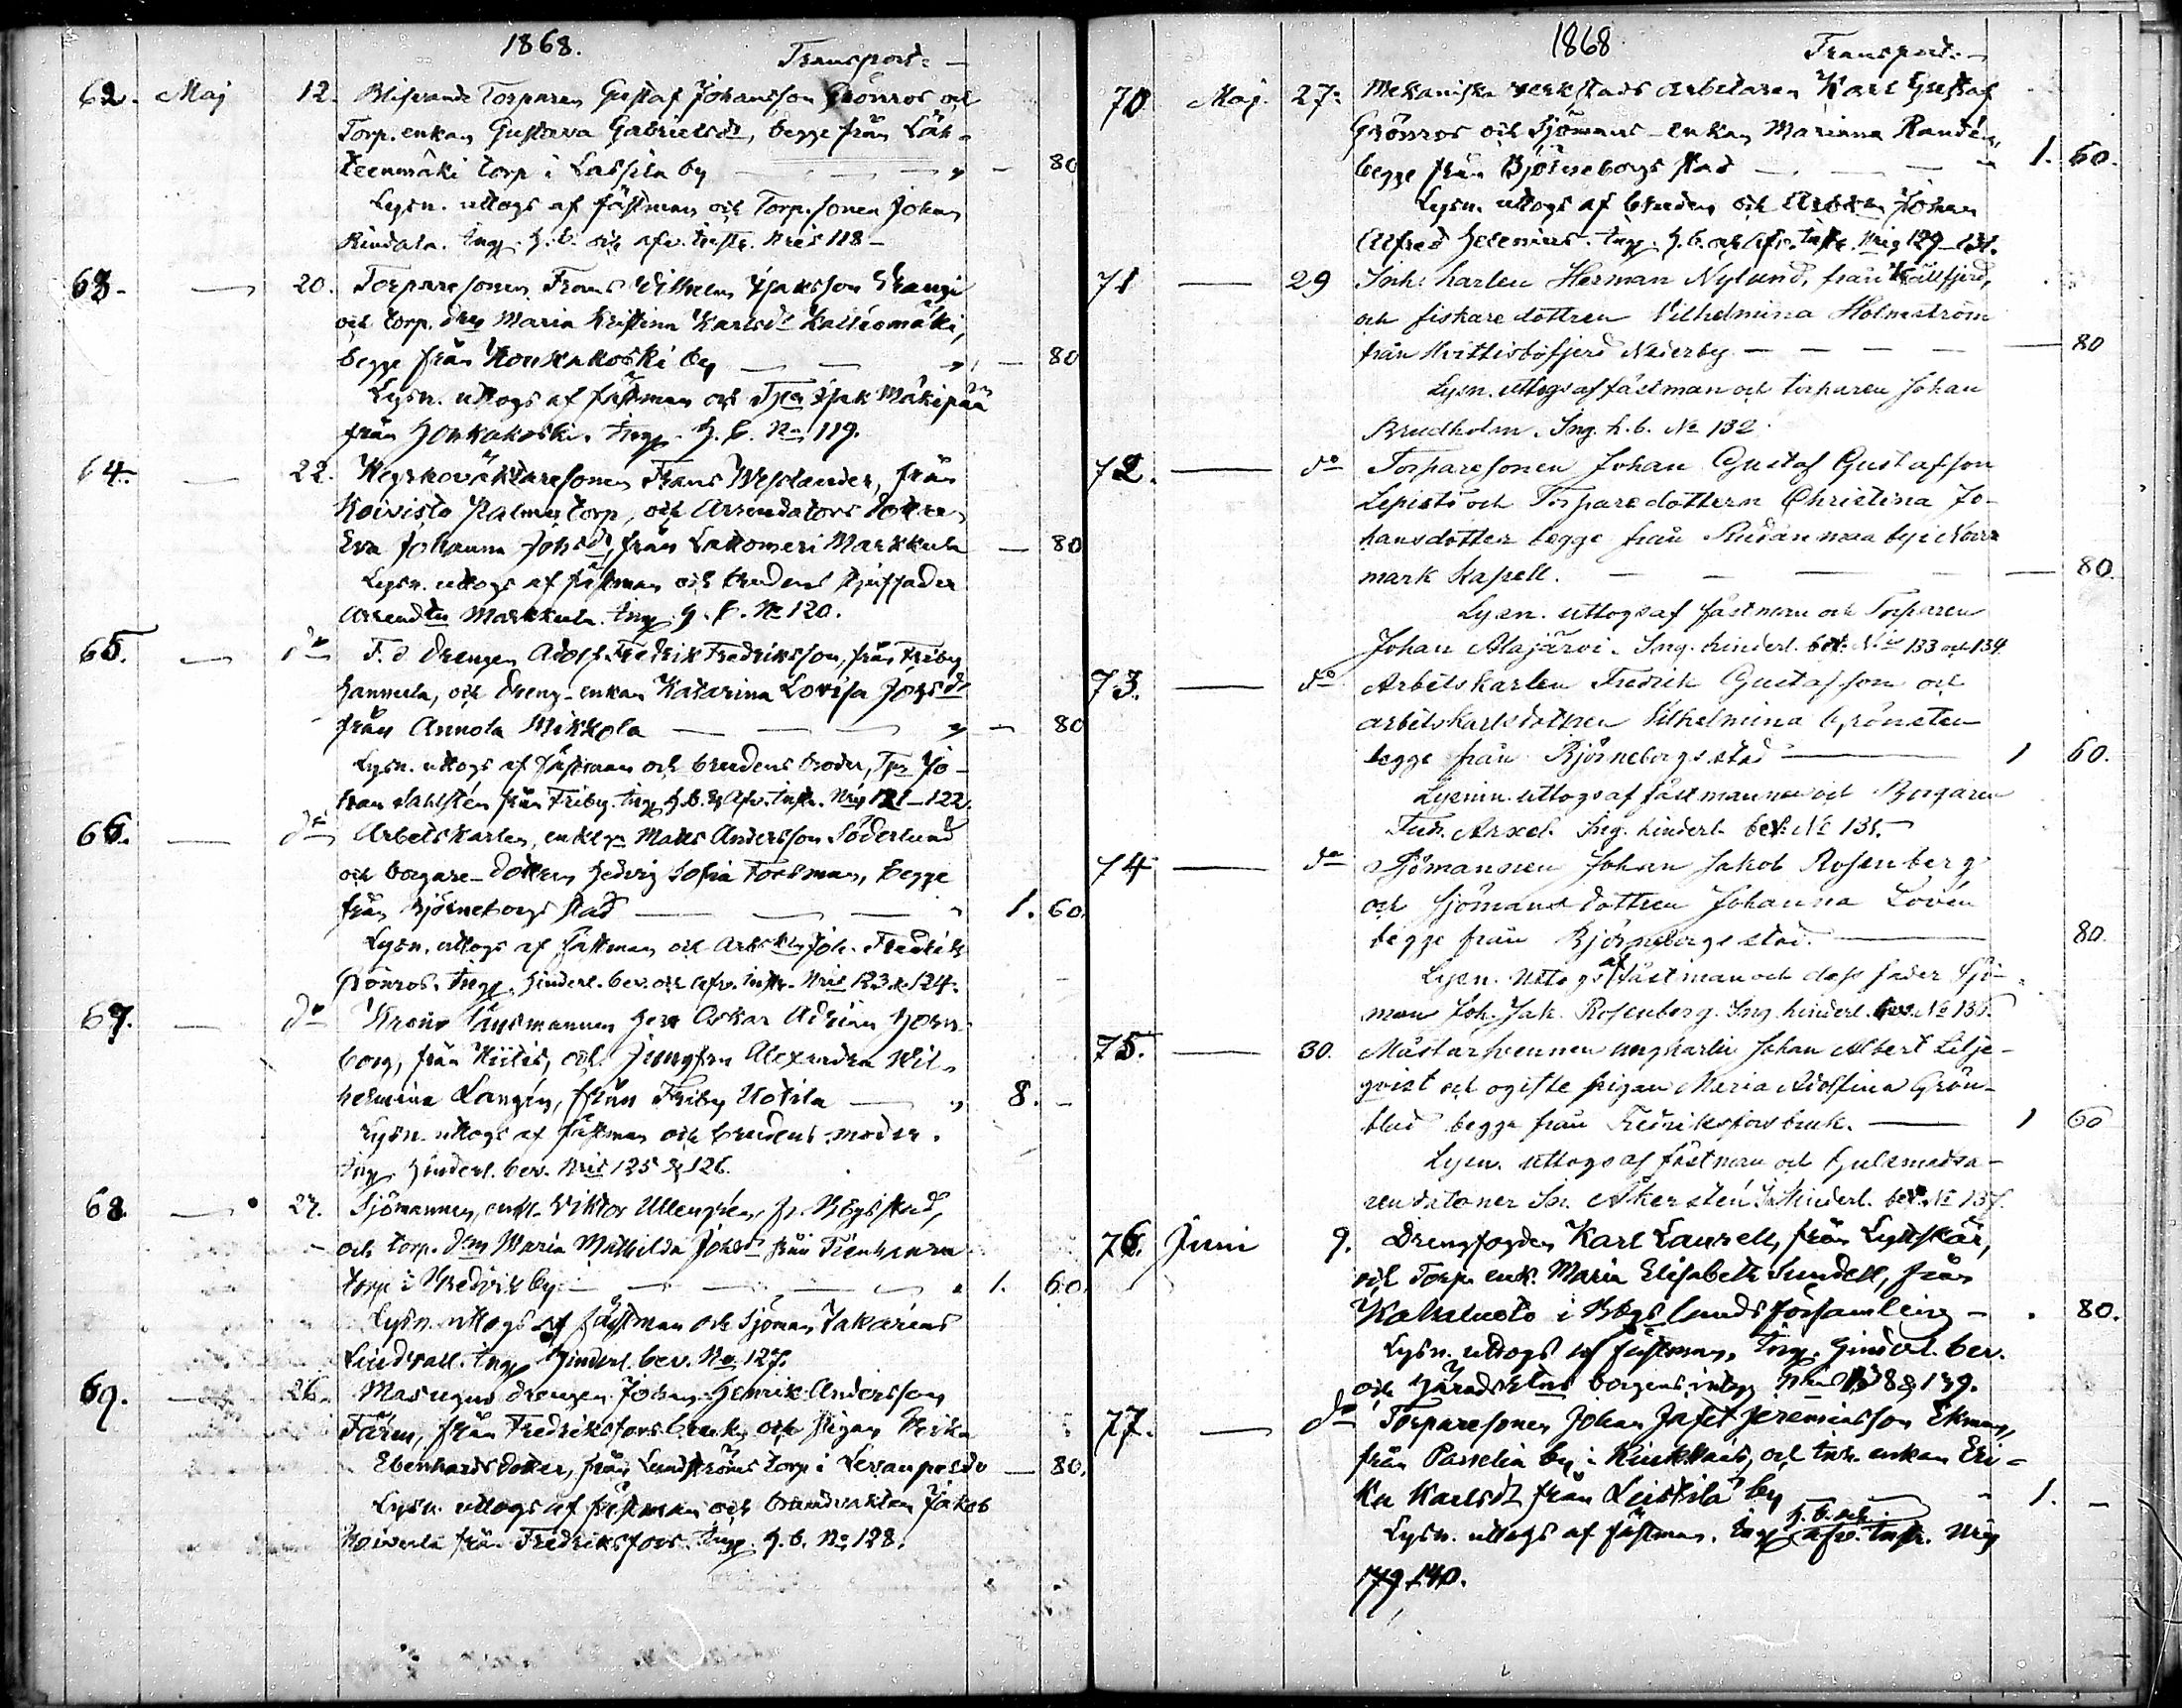 1868.
Transport. —
62. Maj 12. Blifvande Torparen Gustaf Johansson Grönros och
Torp. enkan Gustava Gabrielsdr, begge från Läh-
teenmäki torp i Lassila by — — — „ — 80
Lysn. uttogs af fästman och Torp. sonen Johan
Rindala. Ing. h. b. och afv. instr. Nris 118 —
63. — 20. Torparesonen Frans Wilhelm Isaksson
och torp. dn Maria Kristina Karlsdr Kalliomäki,
begge från Honkakoski by — — „ — 80
Lysn. uttogs af fästman och Tpn Isak Mäkipää
från Honkakoski. Ing. h. b. No 119.
64. — 22. Frans Weslander, från
Koivisto Kalmus torp, och Arrendators dottren
Eva Johanna Johsdr, från Lattomeri Markkula — 80
Lysn. uttogs af fästman och brudens stjuffader
Arrendtn Markkula. Ing. h. b. No 120.
65. — do F. d. Drengen Adolf Fredrik Fredriksson, från Friby
Hannula, och Dreng-enkan Katarina Lovisa Johsdr
från Annola Mikkola — — — „ — 80
Lysn. uttogs af fästman och brudens broder, Tpn Jo-
han Dahlstén från Friby. Ing. h. b. & afv. instr. Nris 121–122.
66. — do Arbetskarlen, enkl. Mats Andersson Söderlund
och borgare-dottren Hedvig Sofia Forsman, begge
från Björneborgs stad — — — „ 1. 60.
Lysn. uttogs af fästman och Arbskln Joh. Fredrik
Grönros. Ing. hinderl. bev. och afv. instr. Nris 123 & 124.
67. — do Krono länsmannen Herr Oskar Adrian Horn-
borg, från Kiikis, och Jungfru Alexandra Wil-
helmina Langén, från Friby Uotila — „ 8. —
Lysn. uttogs af fästman och brudens moder.
Ing. hinderl. bev. Nris 125 & 126.
68. — 27. Sjömannen, enkl. Viktor Ullengrén, fr. Bbgs stad,
och torp. dn Maria Mathilda Johsdr från
torp i Hvedvik by — — — — „ 1. 60.
Lysn. uttogs af fästman och Sjöman Sakarias
Lindvall. Ing. hinderl. bev. No 127.
69. — 26. Masugns drengen Johan Henrik Andersson
från Fredriksfors bruk, och pigan
Eberhardsdotter, från Lundströms torp i Levanpelto — 80.
Lysn. uttogs af fästman och brandvakten Jakob
Koivula från Fredriksfors. Ing. h. b. No 128.
1868
Transport. —
70 Maj. 27. Mekaniska verkstads arbetaren Karl Gustaf
Grönros och Sjömans-enkan Marianna Randén,
begge från Björneborgs stad — — — „ 1. 60.
Lysn. uttogs af bruden och Johan
Alfred Helenius. Ing. h. b. och afv. instr. Nris 129–131.
71 — 29 Inh. karlen Herman Nylund, från
och fiskare dottren Vilhelmina Holmström
från Hvittisbofjerd Nederby — — — — 80
Lysn. uttogs af fästman och torparen Johan
Brudholm. Ing. h. b. No 132.
72. — do Torparesonen Johan Gustaf Gustafsson
Lepistö och Torparedottern Christina Jo-
hansdotter begge från by i Norr-
mark Kapell. — — — — 80.
Lysn. uttogs af fästman och Torparen
Johan Alajärvi. Ing. hinderl. bev. Nris 133 och 134
73. — do Arbetskarlen Fredrik Gustafsson och
arbetskarlsdottren Vilhelmina Grönsten
begge från Björneborgs stad — 1 60.
Lysnin. uttogs af fästmannen och Borgaren
Ing. hinderl. bev. No 135.
74 — do Sjömannen Johan Jakob Rosenberg
och Sjömansdottren Johanna Lovén
begge från Björneborgs stad. — 80.
Lysn. uttogs af fästman och dess fader Sjö-
man Joh. Jak. Rosenberg. Ing. hinderl. bev. No 136.
75. — 30. Mästarsvennen ungkarlen Johan Albert Lilje-
qvist och ogifte pigan Maria Adolfina Grön-
blad begge från Fredriksfors bruk. — 1 60
Lysn. uttogs af fästman och
Åkerstén Ing. hinderl. bev. No 137.
76. Juni 9. Drengfogden Karl Laurell, från Lyttskär,
och Torp. enk. Maria Elisabeth Sundell, från
Kahaluoto i Bbgs landsförsamling — . 80.
Lysn. uttogs af fästman. Ing. hinderl. bev.
och borgens intyg Nris 138 & 139.
77. — do Torparesonen Johan Jafet Jeremiasson Ekman,
från Passelia by i Kiukkais, och inh. enkan Eri-
ka Karlsdr från Leistilä by — „ 1. —
Lysn. uttogs af fästman. Ing. h. b. och afv. instr. Nris
179–140.